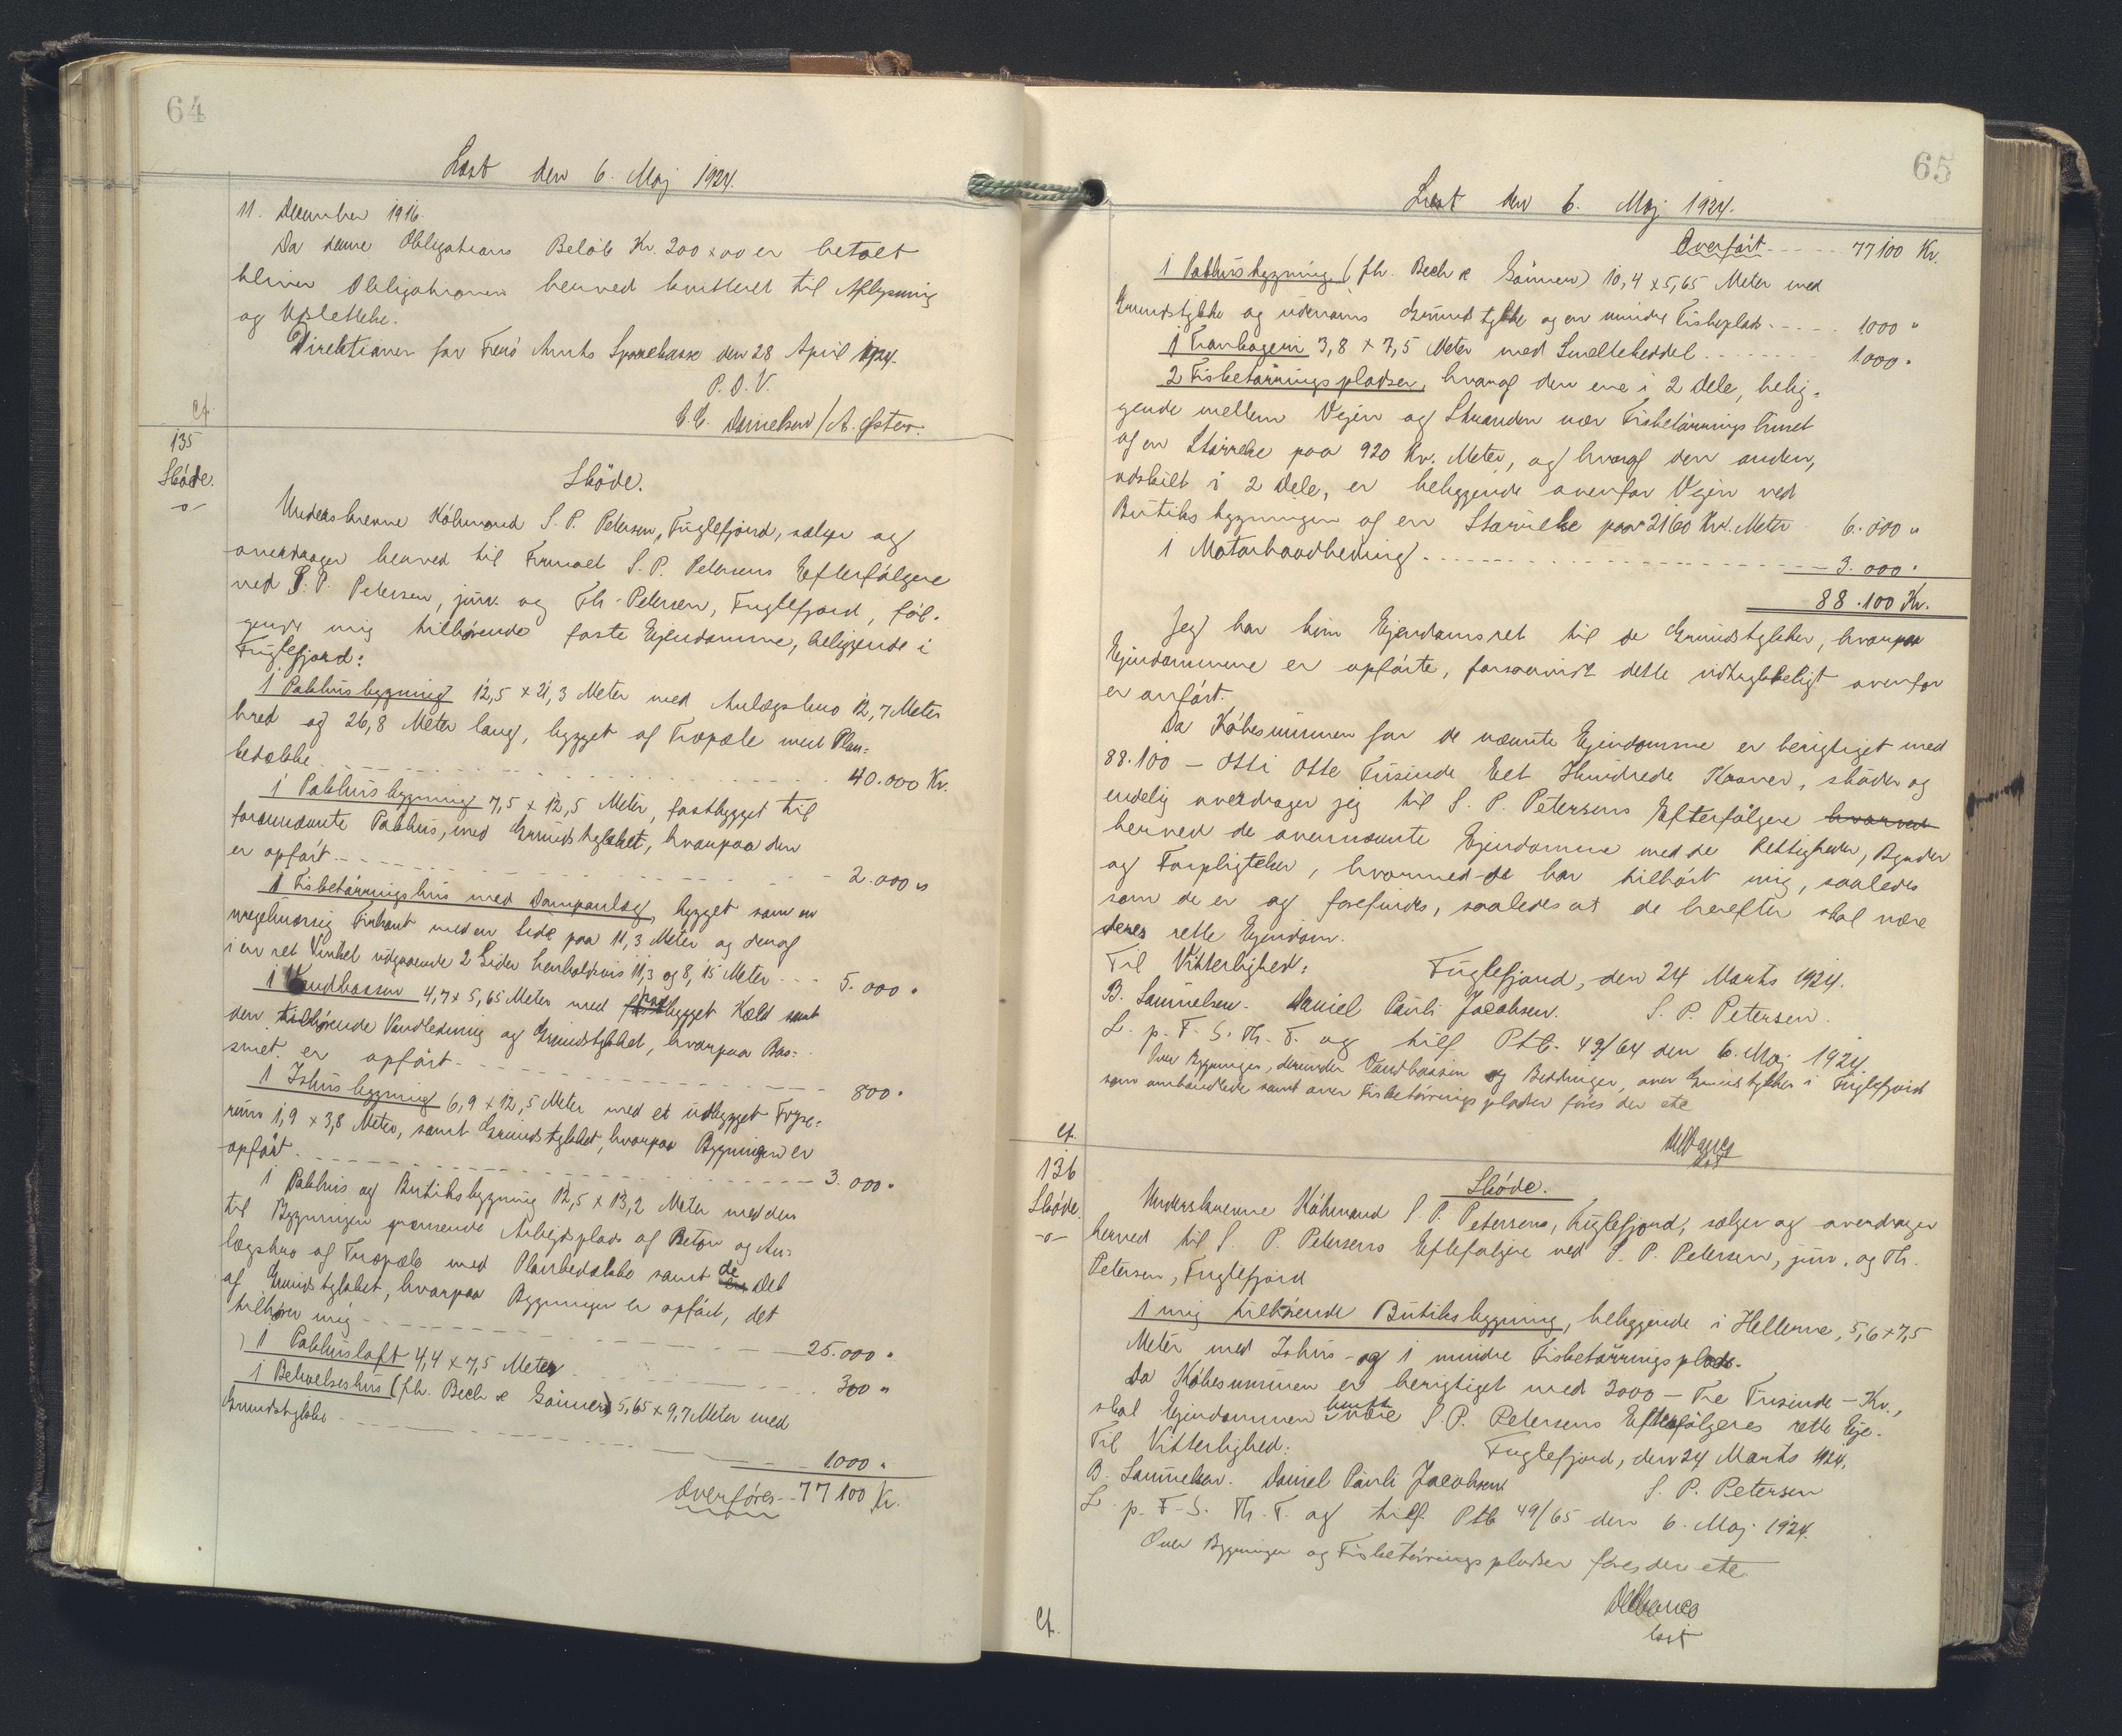 64
Læst den 6. Maj 1924.
11. December 1916.
Da denne Obligations Beløb Kr. 200 x 00 er betalt
bliver Obligationen herved kvitteret til Aflysning
og Udslettelse.
Direktionen for Færø Amts Sparekasse den 28 April 1924.
P. D. V.
C. C. Danielsen / A. Øster.
Cf.
135
Sköde.
-o-
Sköde.
Underskrevne Köbmand S. P. Petersen, Fuglefjord, sælger og
overdrager herved til Firmaet S. P. Petersens Efterfölgere
ved S. P. Petersen, jun. og Th. Petersen, Fuglefjord, föl-
gende mig tilhörende faste Ejendomme, beliggende i
Fuglefjord:
1 Pakhusbygning 12,5 x 21,3 Meter med Anlægsbro 12,7 Meter
bred og 26,8 Meter lang, bygget af Træpæle med Plan-
kedække. 40.000 Kr.
1 Pakhusbygning 7,5 x 12,5 Meter, fastbygget til
forannævnte Pakhus, med Grundstykket, hvorpaa den
er opfört 2.000 "
1 Fisketörringshus med Dampanlæg, bygget som en
uregelmæssig Firkant med en Side paa 11,3 Meter og deraf
i en ret Vinkel udgaaende 2 Sider henholdsvis 11,3 og 8,15 Meter 5.000 "
1 Vandbassin 4,7 x 5,65 Meter med bygget Kæld samt
den tilhörende Vandledning og Grundstykket, hvorpaa Bas-
sinet er opfört. 800 "
1 Ishusbygning 6,9 x 12,5 Meter med et udbygget Fryse-
rum 1,9 x 3,8 Meter, samt Grundstykket, hvorpaa Bygningen er
opfört. 3.000 "
1 Pakhus og Butiksbygning 12,5 x 13,2 Meter med den
til Bygningen grænsende Arbejdsplads af Beton og An-
lægsbro af Træpæle med Plankedække samt de Del
af Grundstykket, hvorpaa Bygningen er opfört, det
tilhörer mig 25.000 "
1 Pakhusloft 4,4 x 7,5 Meter 300 "
1 Beboelseshus (fh. Bech & Sönner) 5,65 x 9,7 Meter med
Grundstykke 1000 "
Overföres 77100 Kr.
65
Læst den 6. Maj 1924.
Overfört 77100 Kr.
1 Pakhusbygning (fh. Bech & Sönner) 10,4 x 5,65 Meter med
Grundstykke og udenoms Grundstykke og en mindre Fiskeplads 1000 "
1 Trankogeri 3,8 x 7,5 Meter med Smeltekeddel 1.000 "
2 Fisketörringspladser, hvoraf den ene i 2 Dele, belig-
gende mellem Vejen og Stranden nær Fisketörringshuset
af en Störrelse paa 920 Kv. Meter, og hvoraf den anden,
udskilt i 2 Dele, er beliggende ovenfor Vejen ved
Butiksbygningen af en Störrelse paa 2160 Kv. Meter 6.000 "
1 Motorbaadbeding 3.000 "
88.100 Kr.
Jeg har kun Ejendomsret til de Grundstykker, hvorpaa
Ejendommene er opförte, forsaavidt dette udtrykkeligt ovenfor
er anfört.
Da Köbesummen for de nævnte Ejendomme er berigtiget med
88.100 — Otti Otte Tusinde Eet Hundrede Kroner, sköder og
endelig overdrager jeg til S. P. Petersens Efterfölgere hvorved
herved de ovennævnte Ejendomme med de Rettigheder, Byrder
og Forpligtelser, hvormed de har tilhört mig, saaledes
som de er og forefindes, saaledes at de herefter skal være
deres rette Ejendom.
Til Vitterlighed: Fuglefjord, den 24 Marts 1924.
B. Samuelsen. Daniel Pauli Jacobsen. S. P. Petersen.
L. p. F. S. Th. F. og tilf. Ptb. 49/64 den 6. Maj 1924.
Over Bygninger, derunder Vandbassin og Bedninger, over Grundstykker i Fuglefjord
som omhandlede samt over Fisketörringspladser föres der ete
Cf.
136
Sköde.
-o-
Sköde.
Underskrevne Köbmand S. P. Petersens, Fuglefjord, sælger og overdrager
herved til S. P. Petersens Efterfölgere ved S. P. Petersen, jun. og Th.
Petersen, Fuglefjord
1 mig tilhörende Butiksbygning, beliggende i Hellerne, 5,6 x 7,5
Meter med Ishus og 1 mindre Fisketörringsplads.
Da Köbesummen er berigtiget med 3000 — Tre Tusinde — Kr.,
skal Ejendommen være S. P. Petersens Efterfölgeres rette Eje.
Til Vitterlighed: Fuglefjord, den 24 Marts 1924.
B. Samuelsen. Daniel Pauli Jacobsen S. P. Petersen
L. p. F. S. Th. F. og tilf. Ptb 49/65 den 6. Maj 1924.
Over Bygninger og Fisketörringspladser föres der ete
Cf.